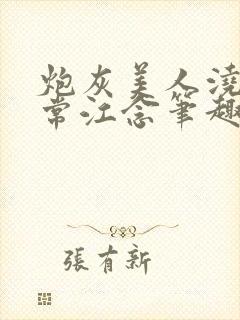 炮灰美人澆
常江念筆趣
張有新